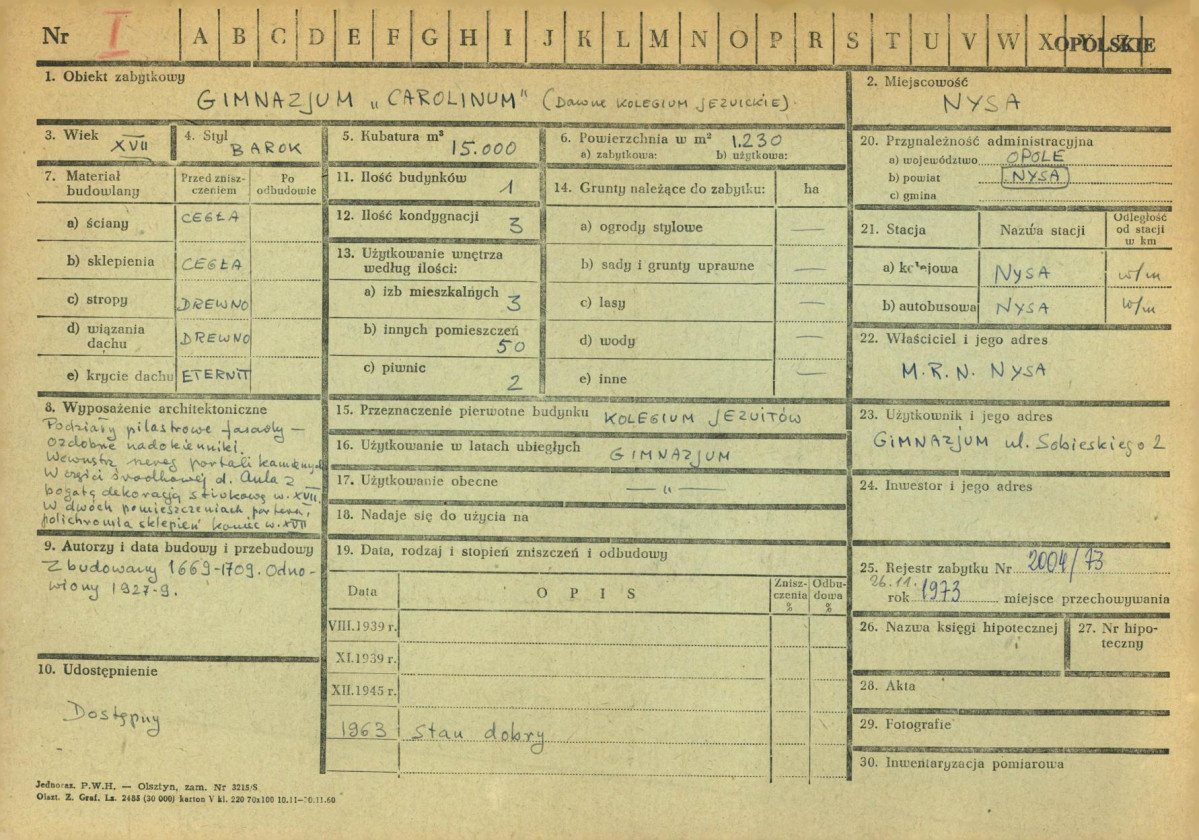 Nr I A B C D E F G H I J K L M N O P R S T U V W X Y Z OPOLSKIE
1. Obiekt zabytkowy
GIMNAZJUM „CAROLINUM" (Dawne KOLEGIUM JEZUICKIE).
2. Miejscowość
NYSA
3. Wiek XVII
4. Styl BAROK
5. Kubatura m³ 15.000
6. Powierzchnia w m² 1.230
a) zabytkowa: b) użytkowa:
7. Materiał budowlany
Przed zniszczeniem
Po odbudowie
a) ściany CEGŁA
b) sklepienia CEGŁA
c) stropy DREWNO
d) wiązania dachu DREWNO
e) krycie dachu ETERNIT
8. Wyposażenie architektoniczne
Podziały pilastrowe fasady –
ozdobne nadokienniki.
Wewnątrz szereg portali kamiennych
W części środkowej d. Aula z
bogatą dekoracją stiukową w. XVII.
W dwóch pomieszczeniach parteru,
polichromia sklepień koniec w. XVII
9. Autorzy i data budowy i przebudowy
Zbudowany 1669-1709. Odno-
wiony 1927-9.
10. Udostępnienie
Dostępny
11. Ilość budynków 1
12. Ilość kondygnacji 3
13. Użytkowanie wnętrza według ilości:
a) izb mieszkalnych 3
b) innych pomieszczeń 50
c) piwnic 2
14. Grunty należące do zabytku: ha
a) ogrody stylowe —
b) sady i grunty uprawne —
c) lasy —
d) wody —
e) inne —
15. Przeznaczenie pierwotne budynku KOLEGIUM JEZUITÓW
16. Użytkowanie w latach ubiegłych GIMNAZJUM
17. Użytkowanie obecne — „ —
18. Nadaje się do użycia na
19. Data, rodzaj i stopień zniszczeń i odbudowy
Data OPIS Zniszczenia % Odbudowa %
VIII.1939 r.
XI.1939 r.
XII.1945 r.
1963 Stan dobry
20. Przynależność administracyjna
a) województwo OPOLE
b) powiat NYSA
c) gmina
21. Stacja Nazwa stacji Odległość od stacji w km
a) kolejowa NYSA w/m
b) autobusowa NYSA w/m
22. Właściciel i jego adres
M.R.N. NYSA
23. Użytkownik i jego adres
GIMNAZJUM ul. Sobieskiego 2
24. Inwestor i jego adres
25. Rejestr zabytku Nr 2004/73
26.11.
rok 1973 miejsce przechowywania
26. Nazwa księgi hipotecznej
27. Nr hipoteczny
28. Akta
29. Fotografie
30. Inwentaryzacja pomiarowa
Jednoraz. P.W.H. — Olsztyn, zam. Nr 3215/S
Olszt. Z. Graf. Lz. 2485 (30 000) karton V kl. 220 70x100 10.11—30.11.60